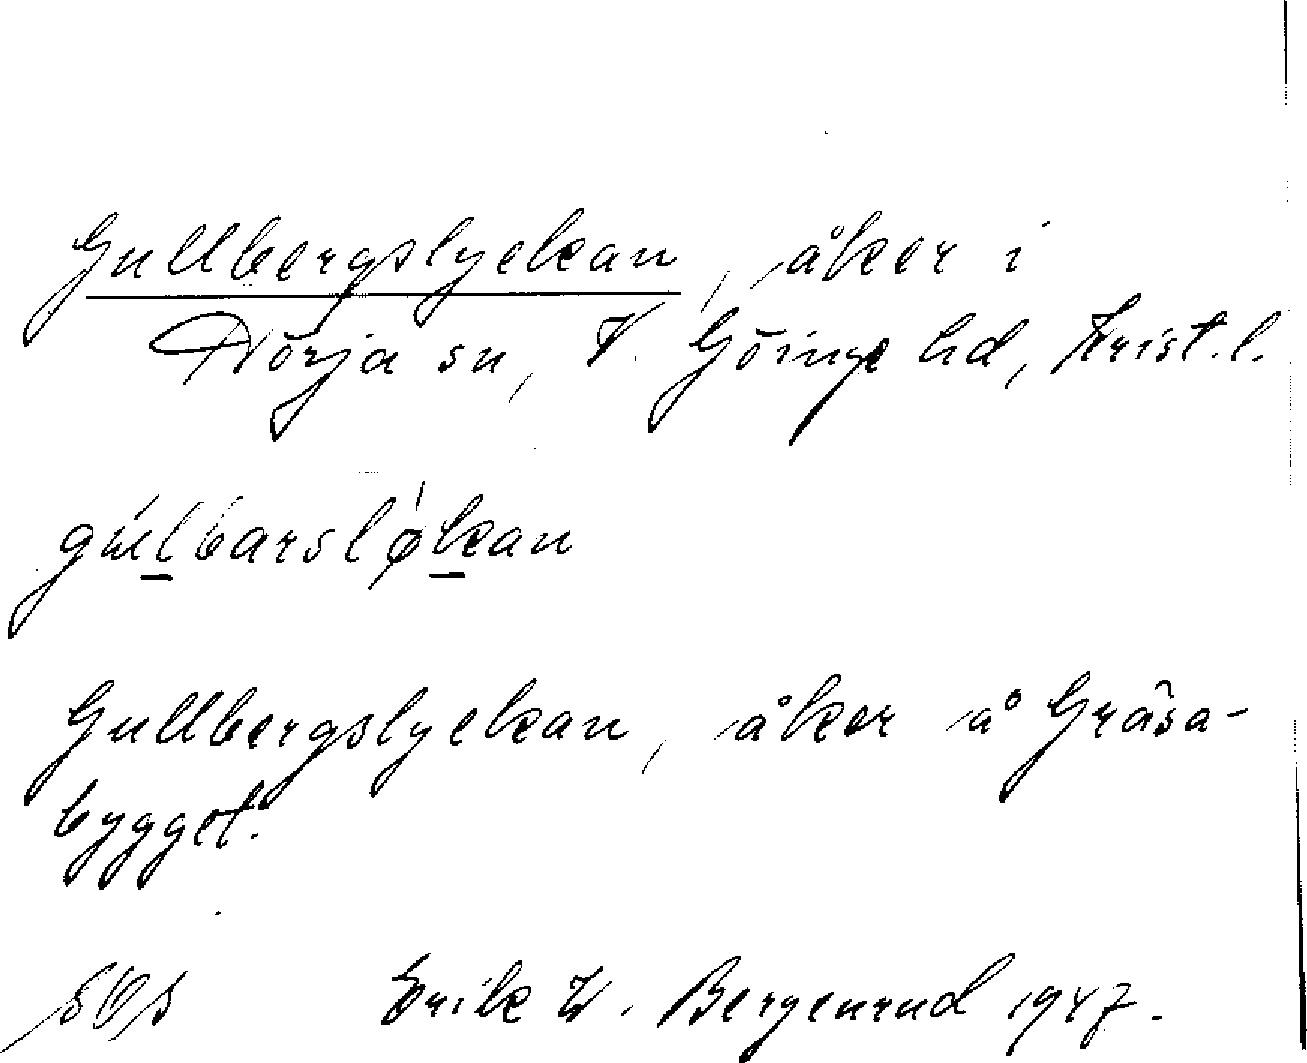 Gullbergslyckan, åker i
Nörja sn, V. Göinge hd, Krist.l.
gúlbarsløkan
Gullbergslyckan, åker å Gräsa-
bygget.
Erik W. Bergenrud 1947.